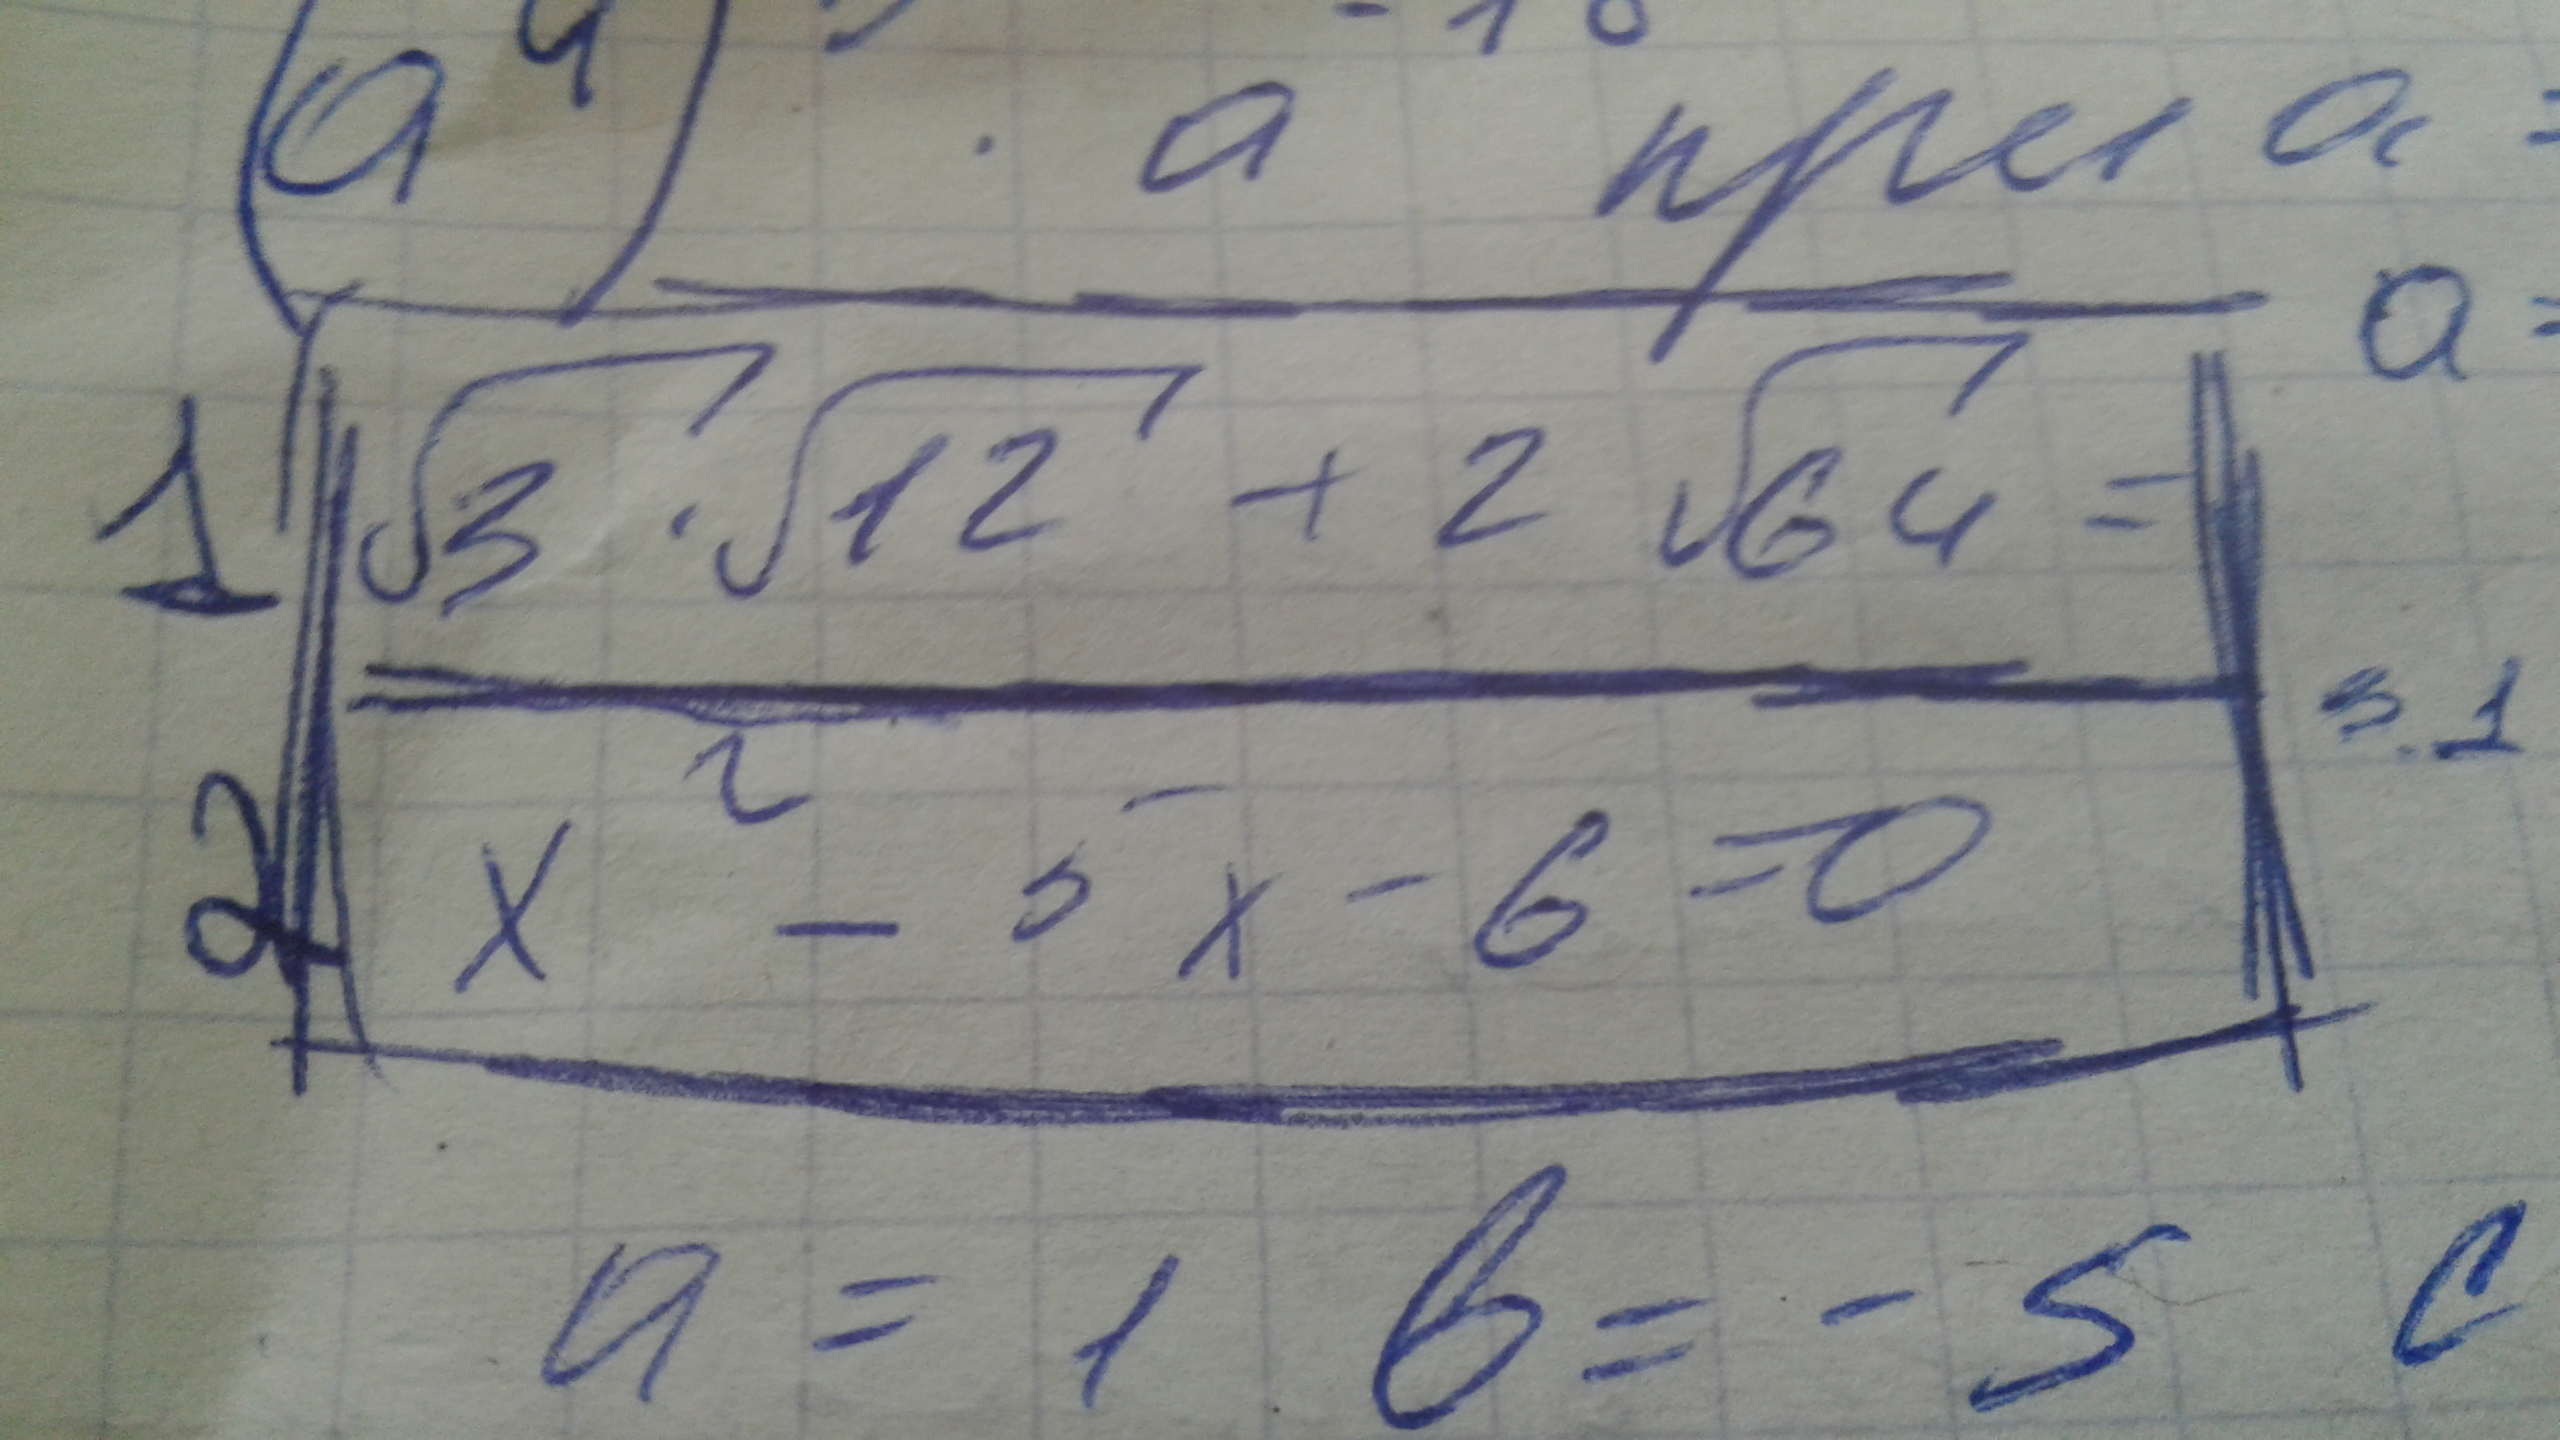 (a⁴) · a⁻¹⁰ при a =
a =
1 √3 · √12 + 2 √64 =
5.1
2 x² - 5x - 6 = 0
a = 1 b = - 5 c